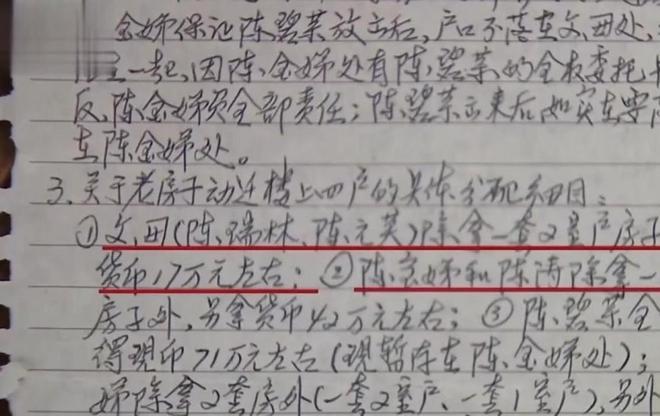 金娣保证陈碧菜放出后,户口不落至父母处,
一起,因陈金娣处有陈碧菜的全权委托
反,陈金娣负全部责任;陈碧菜出来后如实在要
在陈金娣处。
3.关于老房子动迁楼上四户的具体分配细目:
①父、母(陈瑞林、陈元英)除拿一套2室户房子
货币17万元左右;②陈金娣和陈涛除拿一
房子外,另拿货币42万元左右;③陈碧菜全
得现币71万元左右(现暂存在陈金娣处);
娣除拿2套房外(一套2室户、一套1室户),另外